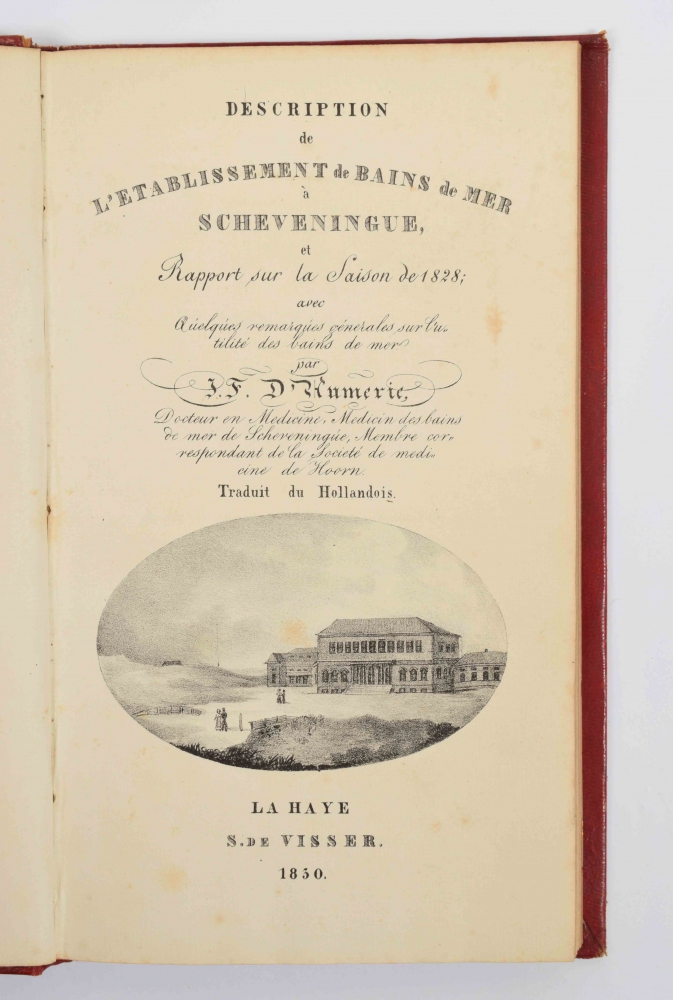 DESCRIPTION
de
L'ETABLISSEMENT de BAINS de MER
à
SCHEVENINGUE,
et
Rapport sur la Saison de 1828;
avec
Quelques remarques génerales sur l'u-
tilité des bains de mer
par
J. F. D'Aumerie,
Docteur en Medicine, Medicin des bains
de mer de Scheveningue, Membre cor-
respondant de la Societé de medi-
cine de Hoorn.
Traduit du Hollandois.
LA HAYE
S. DE VISSER.
1830.